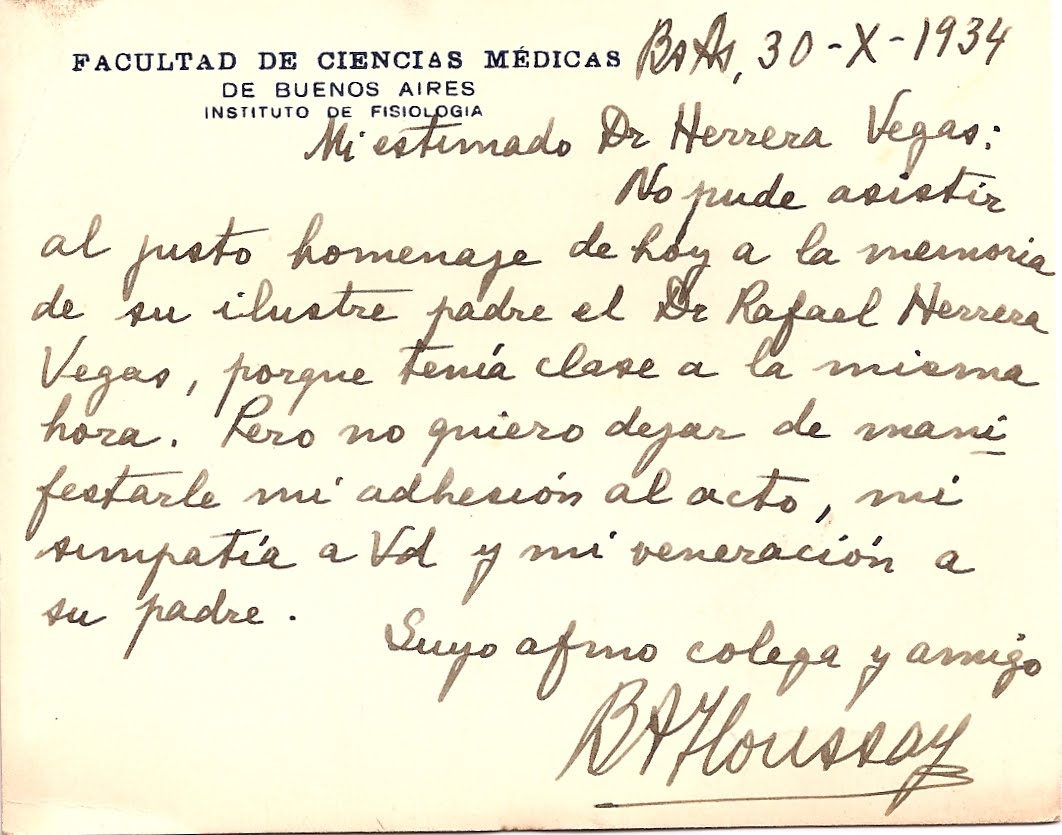 FACULTAD DE CIENCIAS MÉDICAS
DE BUENOS AIRES
INSTITUTO DE FISIOLOGIA
Bs As, 30-X-1934
Mi estimado Dr Herrera Vegas:
No pude asistir
al justo homenaje de hoy a la memoria
de su ilustre padre el Dr Rafael Herrera
Vegas, porque tenía clase a la misma
hora. Pero no quiero dejar de mani
festarle mi adhesión al acto, mi
simpatía a Vd y mi veneración a
su padre.
Suyo afmo colega y amigo
B A Houssay